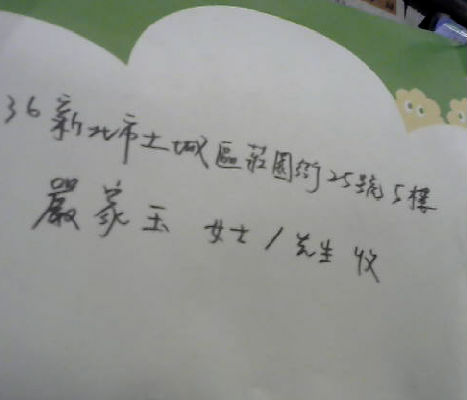 36新北市土城區莊園街25號5樓
嚴家玉 女士/先生 收